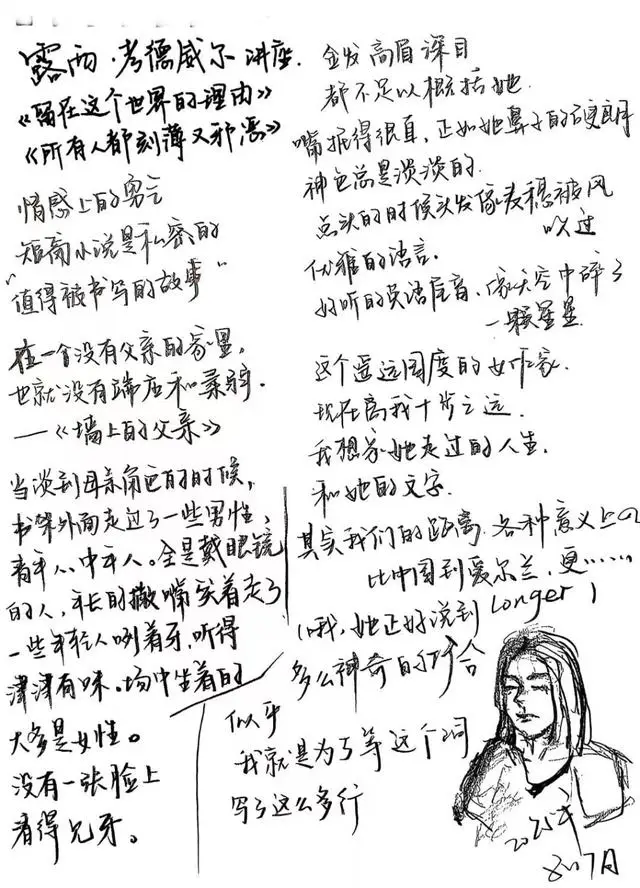 露西·考德威尔 讲座.
《留在这个世界的理由》
《所有人都刻薄又邪恶》
情感上的勇气
短篇小说是私密的
"值得被书写的故事"
在一个没有父亲的家里,
也就没有端店和桑弱.
—《墙上的父亲》
当谈到母亲角色的时候,
书架外面走过了一些男性,
青年人、中年人。全是戴眼镜
的人,年长的撇嘴笑着走了
一些年轻人咧着牙,听得
津津有味。场中坐着的
大多是女性。
没有一张脸上
看得见牙。
金发高眉深目
都不足以概括她.
嘴抿得很直,正如她鼻子的硬朗
神色总是淡淡的.
点头的时候头发像麦穗被风
吹过
优雅的语言.
好听的英语尾音、像天空中碎了
一颗星星.
这个遥远国度的女作家.
现在离我十步之远.
我想象她走过的人生.
和她的文字.
其实我们的距离.各种意义上の
比中国到爱尔兰,更……
longer)
(哦,她正好说到
多么神奇的巧合
似乎
我就是为了等这个词
写了这么多行
2025年
8月7日